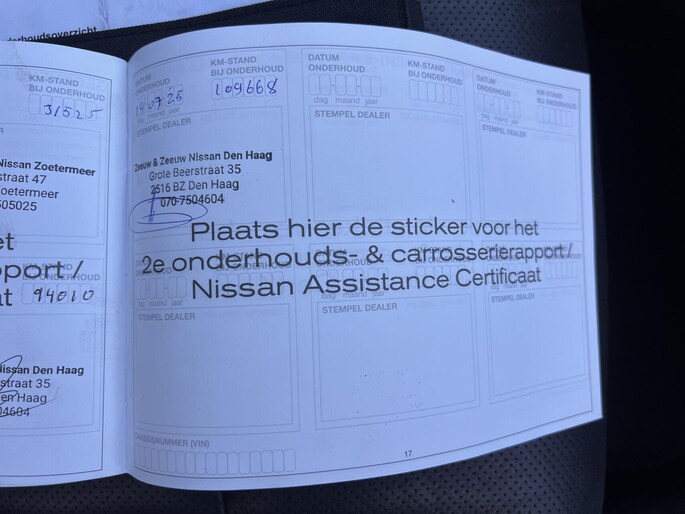 derhoudsoverzicht
KM-STAND
BIJ ONDERHOUD
31525
Nissan Zoetermeer
straat 47
oetermeer
505025
et
pport /
at
KM-STAND
BIJ ONDERHOUD
94010
Nissan Den Haag
straat 35
en Haag
04604
DATUM
ONDERHOUD
14 07 25
dag maand jaar
KM-STAND
BIJ ONDERHOUD
109668
STEMPEL DEALER
Zeeuw & Zeeuw Nissan Den Haag
Grote Beerstraat 35
2516 BZ Den Haag
070-7504604
DATUM
ONDERHOUD
dag maand jaar
KM-STAND
BIJ ONDERHOUD
STEMPEL DEALER
DATUM
ONDERHOUD
dag maand jaar
KM-STAND
BIJ ONDERHOUD
STEMPEL DEALER
Plaats hier de sticker voor het
2e onderhouds- & carrosserierapport /
Nissan Assistance Certificaat
STEMPEL DEALER
dag maand jaar
STEMPEL DEALER
dag maand jaar
STEMPEL DEALER
CHASSISNUMMER (VIN)
17